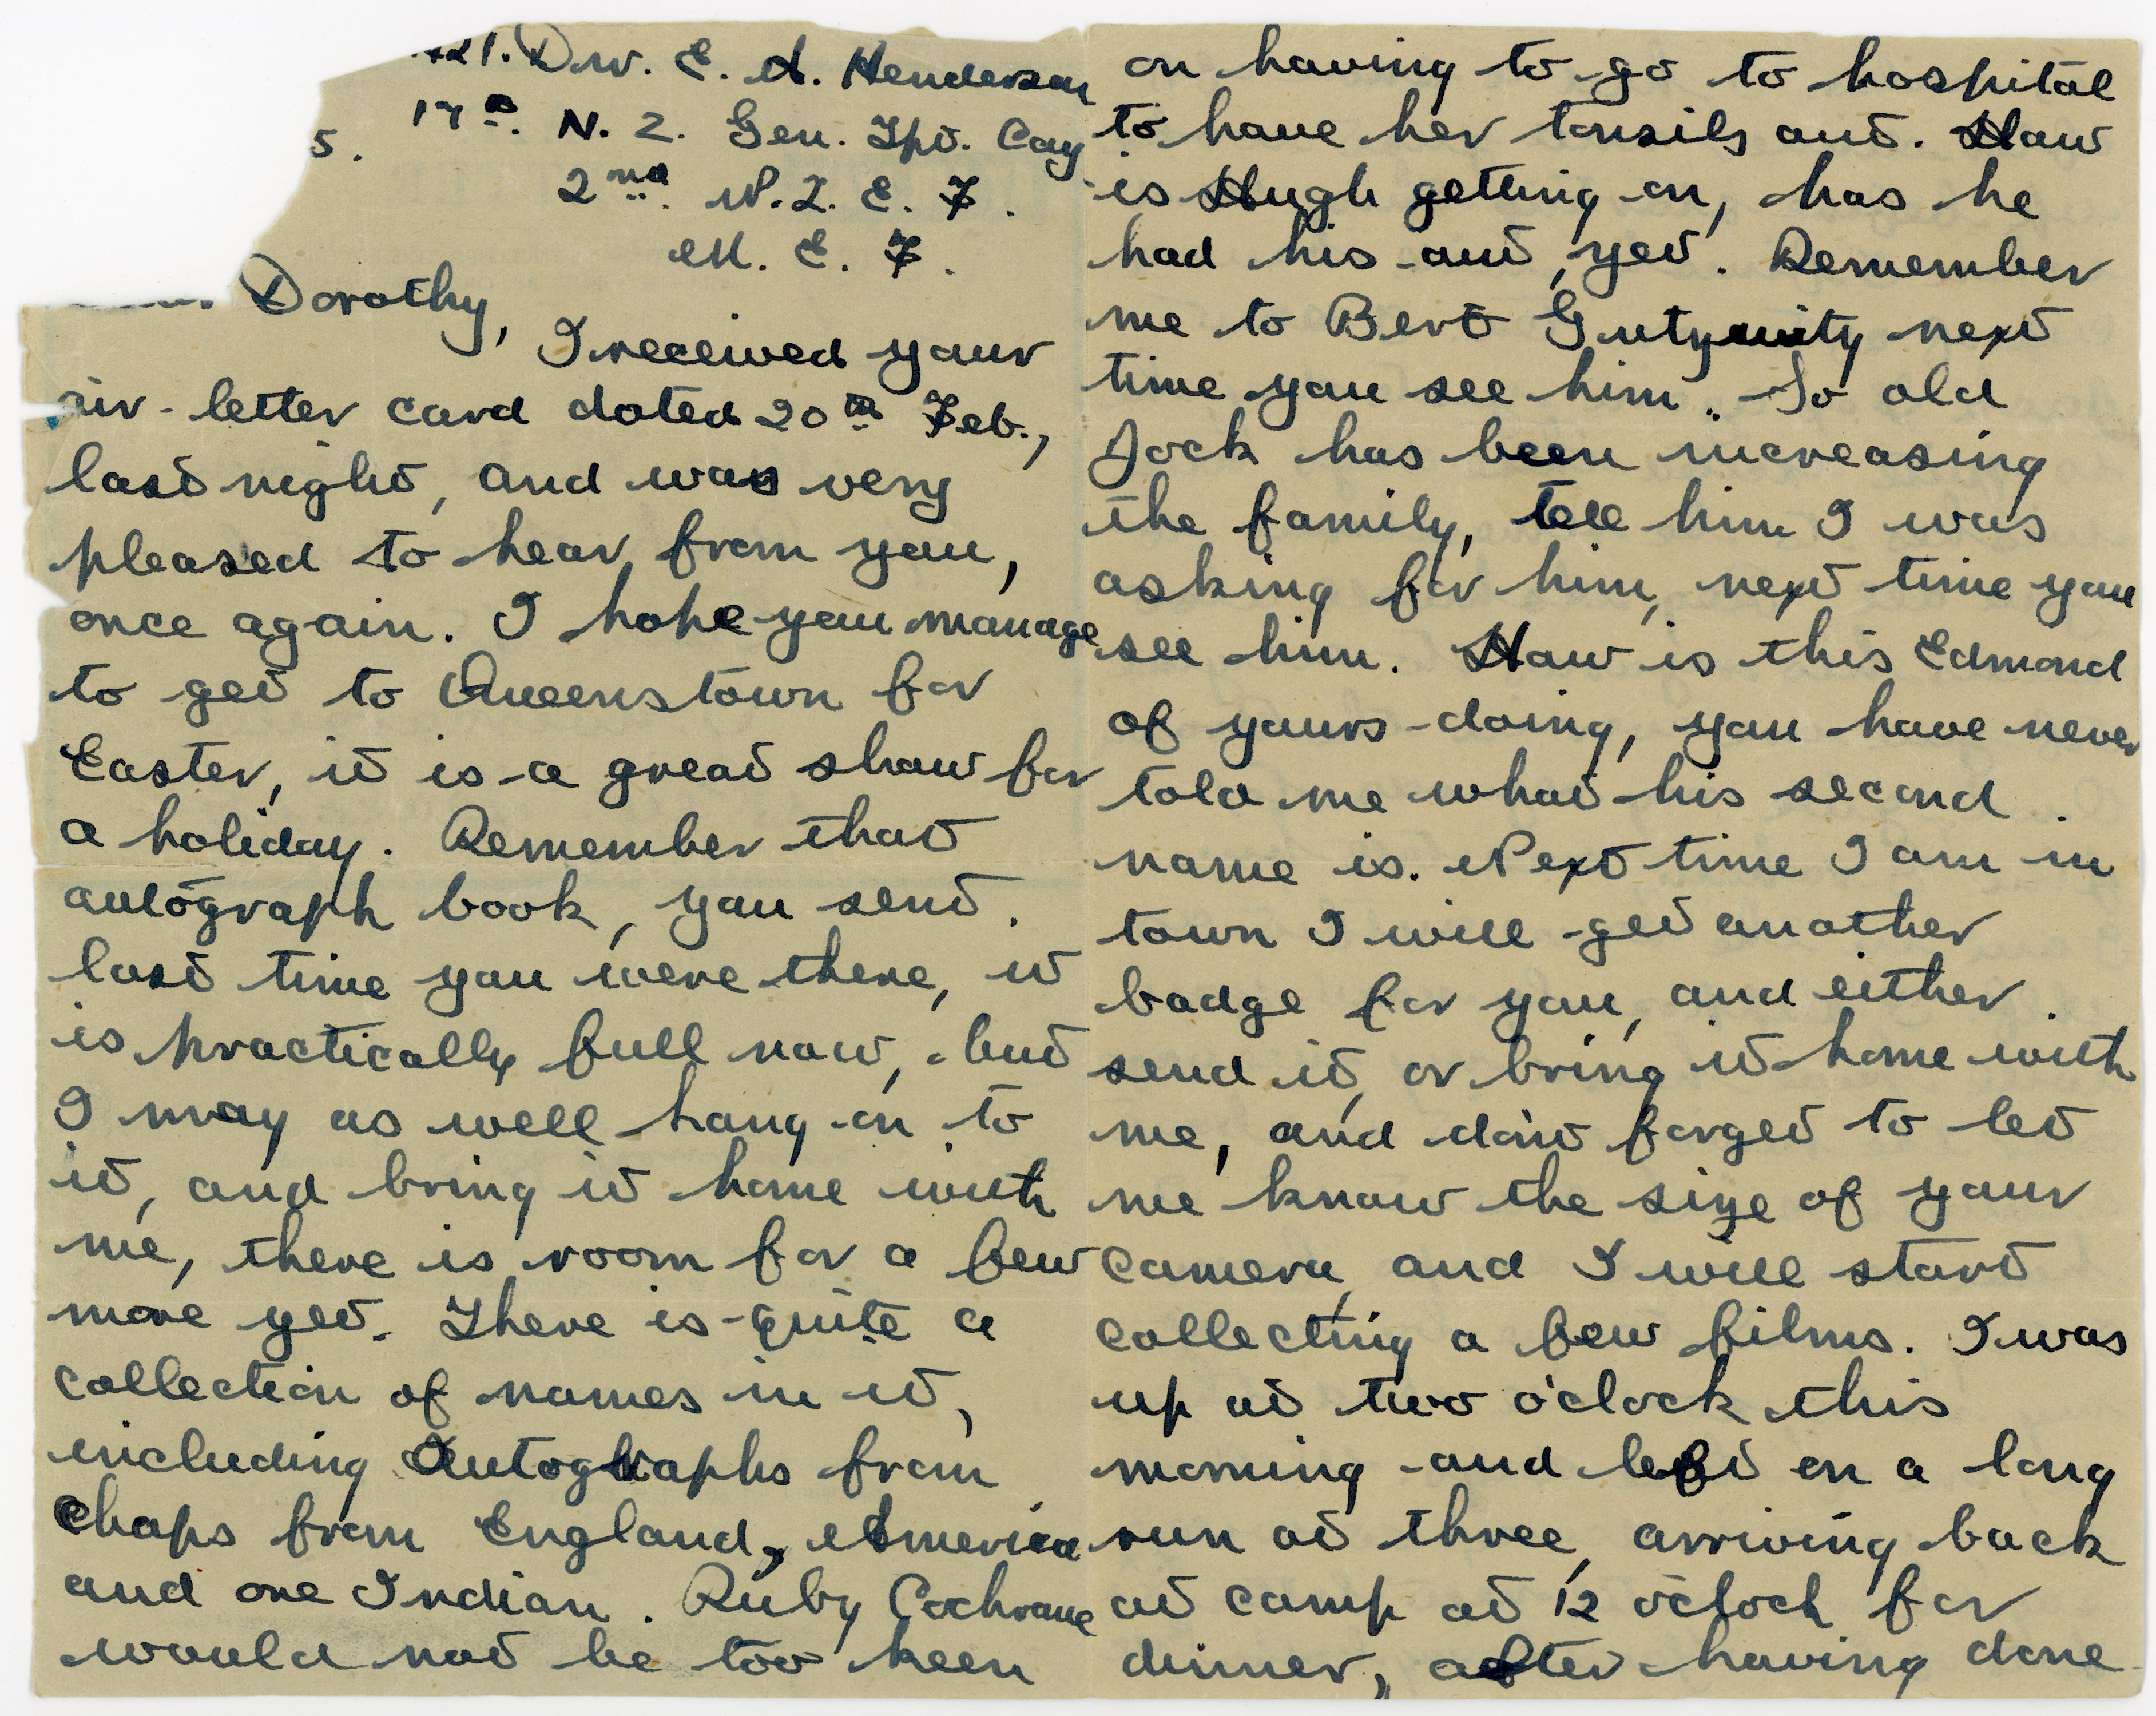 421. Dvr. E. A. Henderson
17th. N. Z. Gen. Tpt. Coy
5.
2nd. N. Z. E. F.
M. E. F.
Dorothy,
I received your
air-letter card dated 20th Feb.,
last night, and was very
pleased to hear from you,
once again. I hope you manage
to get to Queenstown for
Easter, it is a great show for
a holiday. Remember that
autograph book, you sent.
last time you were there, it
is practically full now, but
I may as well hang on to
it, and bring it home with
me, there is room for a few
more yet. There is quite a
collection of names in it,
including Autographs from
chaps from England, America
and one Indian. Ruby Cochrane
would not be too keen
on having to go to hospital
to have her tonsils out. How
is Hugh getting on, has he
had his out, yet. Remember
me to Bert next
time you see him. So old
Jock has been increasing
the family, tell him I was
asking for him, next time you
see him. How is this Edmond
of yours doing, you have never
told me what his second
name is. Next time I am in
town I will get another
badge for you, and either
send it, or bring it home with
me, and don't forget to let
me know the size of your
camera, and I will start
collecting a few films. I was
up at two o'clock this
morning and left on a long
run at three, arriving back
at camp at 12 o'clock for
dinner, after having done